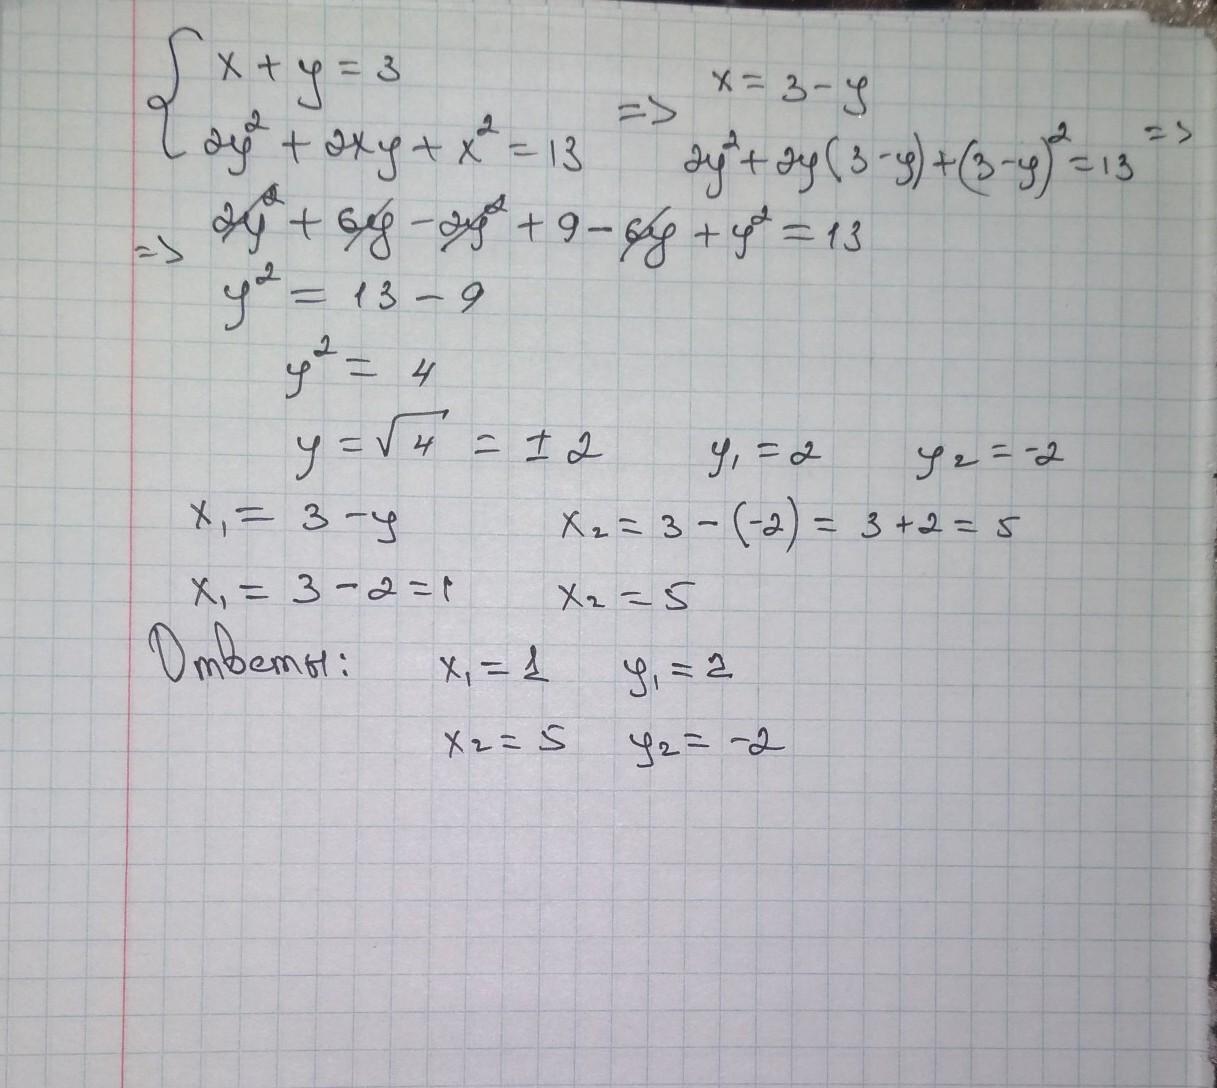 x + y = 3
2y² + 2xy + x² = 13
=> x = 3 - y
2y² + 2y(3 - y) + (3 - y)² = 13 =>
=> 2y² + 6y - 2y² + 9 - 6y + y² = 13
y² = 13 - 9
y² = 4
y = √4 = ± 2 y₁ = 2 y₂ = -2
x₁ = 3 - y x₂ = 3 - (-2) = 3 + 2 = 5
x₁ = 3 - 2 = 1 x₂ = 5
Ответы: x₁ = 1 y₁ = 2
x₂ = 5 y₂ = -2